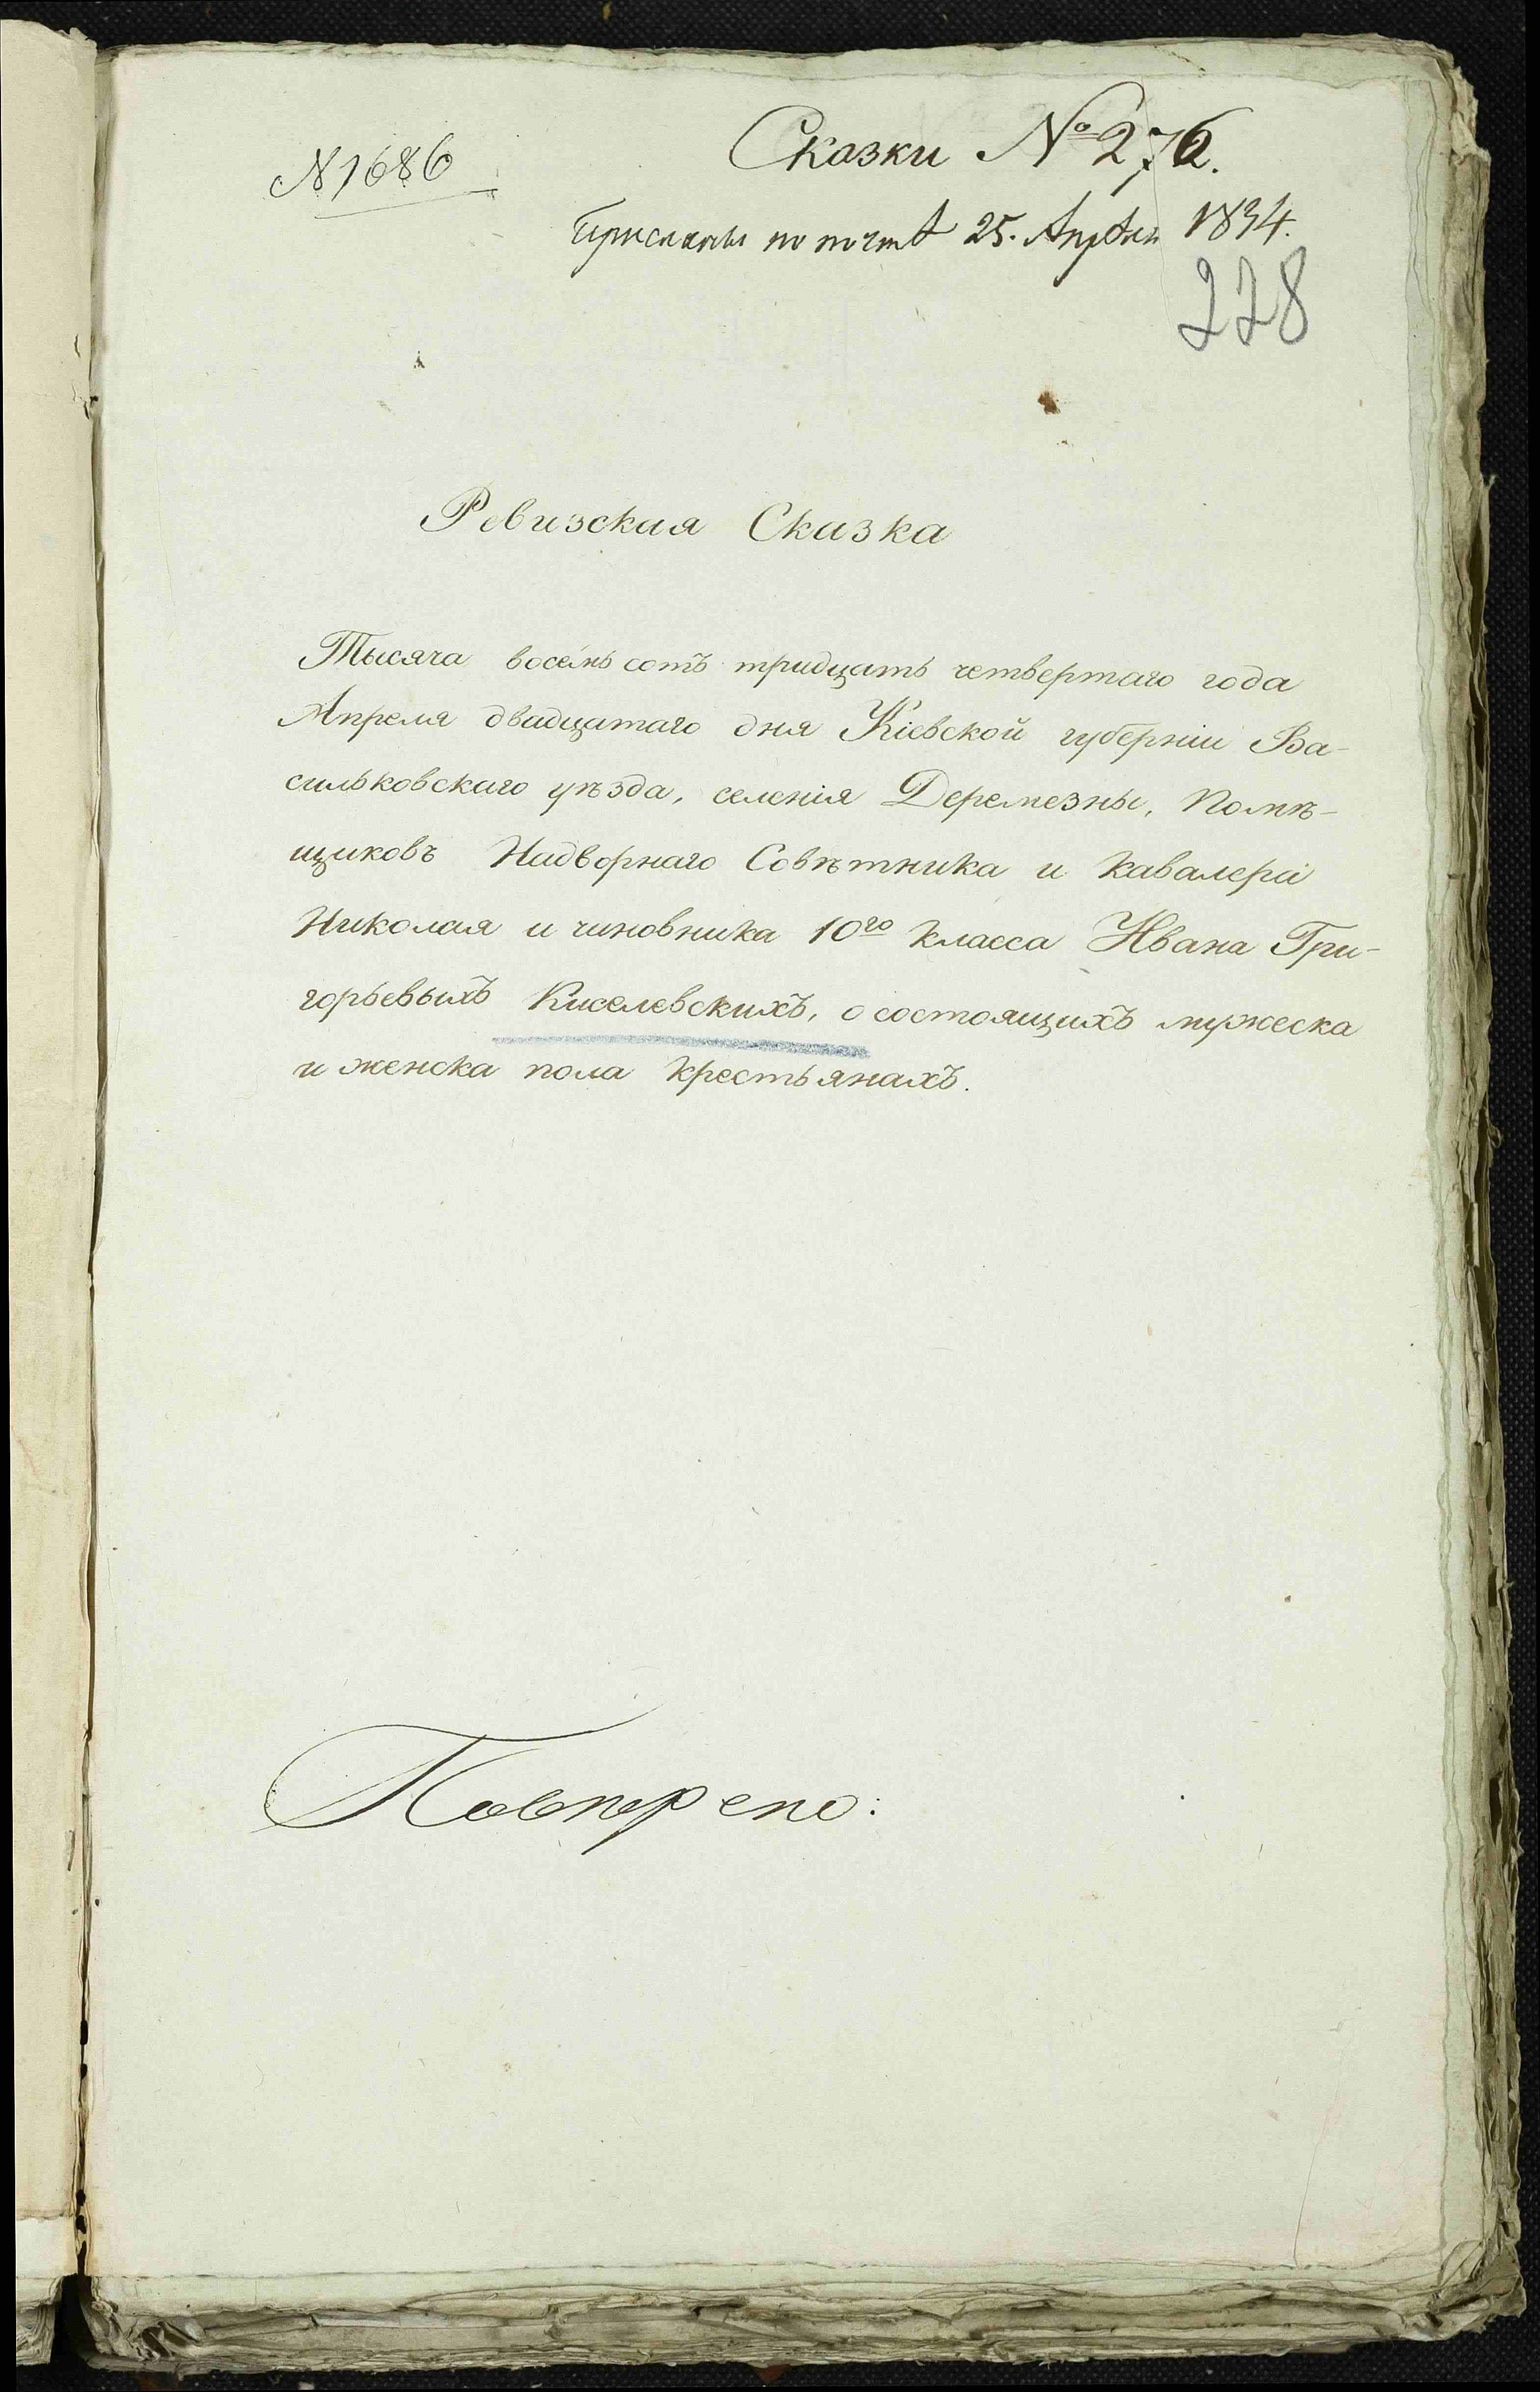 № 1686
Сказки № 276.
Присланы по почтѣ 25. Апрѣля 1834.
228
Ревизская Сказка
Тысяча восемь сотъ тридцать четвертаго года
Апреля двадцатаго дня Кіевской губерніи Ва-
сильковскаго уѣзда, селенія Деремезны, Помѣ-
щиковъ Надворнаго Совѣтника и Кавалера
Николая и чиновника 10го класса Ивана Гри-
горьевыхъ Киселевскихъ, о состоящихъ мужеска
и женска пола крестьянахъ.